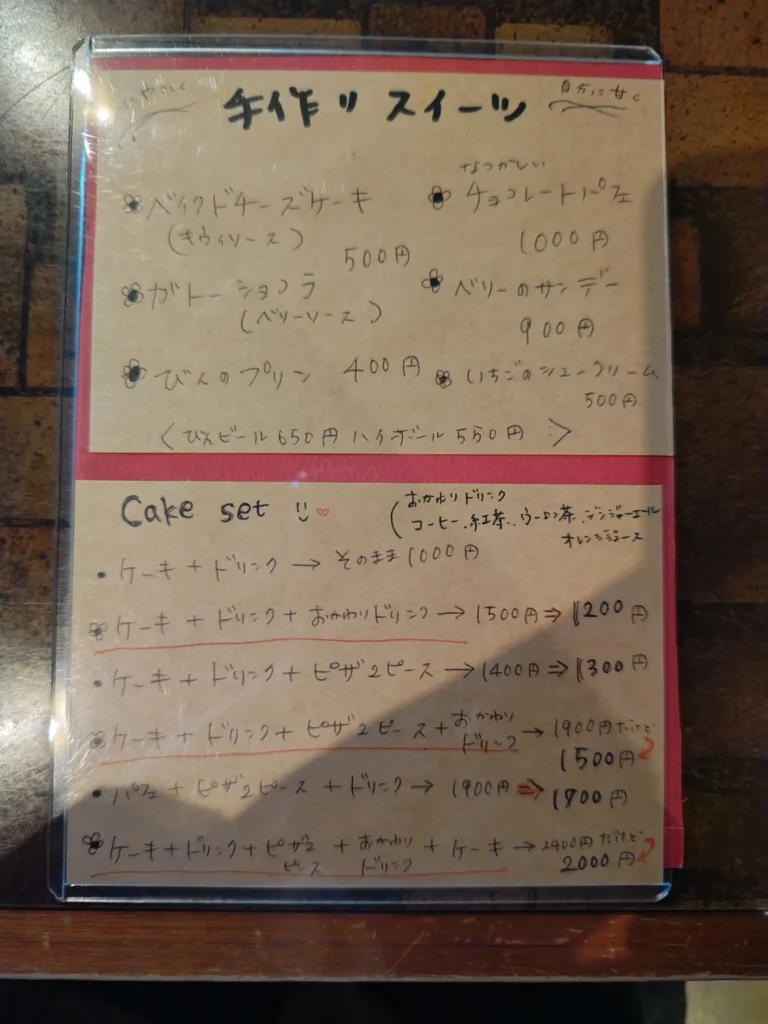 にやさしく
手作りスイーツ
自分に甘く
ベイクドチーズケーキ
(キウイソース)
500円
ガトーショコラ
(ベリーソース)
びんのプリン 400円
なつかしい
チョコレートパフェ
1000円
ベリーのサンデー
900円
いちごのシュークリーム
500円
〈びんビール 650円 ハイボール 550円 〉
Cake set
(おかわりドリンク
コーヒー、紅茶、ウーロン茶、ジンジャーエール
オレンジジュース
・ケーキ+ドリンク→そのまま1000円
ケーキ+ドリンク+おかわりドリンク→1500円⇒1200円
・ケーキ+ドリンク+ピザ2ピース→1400円⇒1300円
ケーキ+ドリンク+ピザ2ピース+おかわりドリンク→1900円だけど
1500円
・パフェ+ピザ2ピース+ドリンク→1900円⇒1700円
ケーキ+ドリンク+ピザ2ピース+おかわりドリンク+ケーキ→2400円だけど
2000円